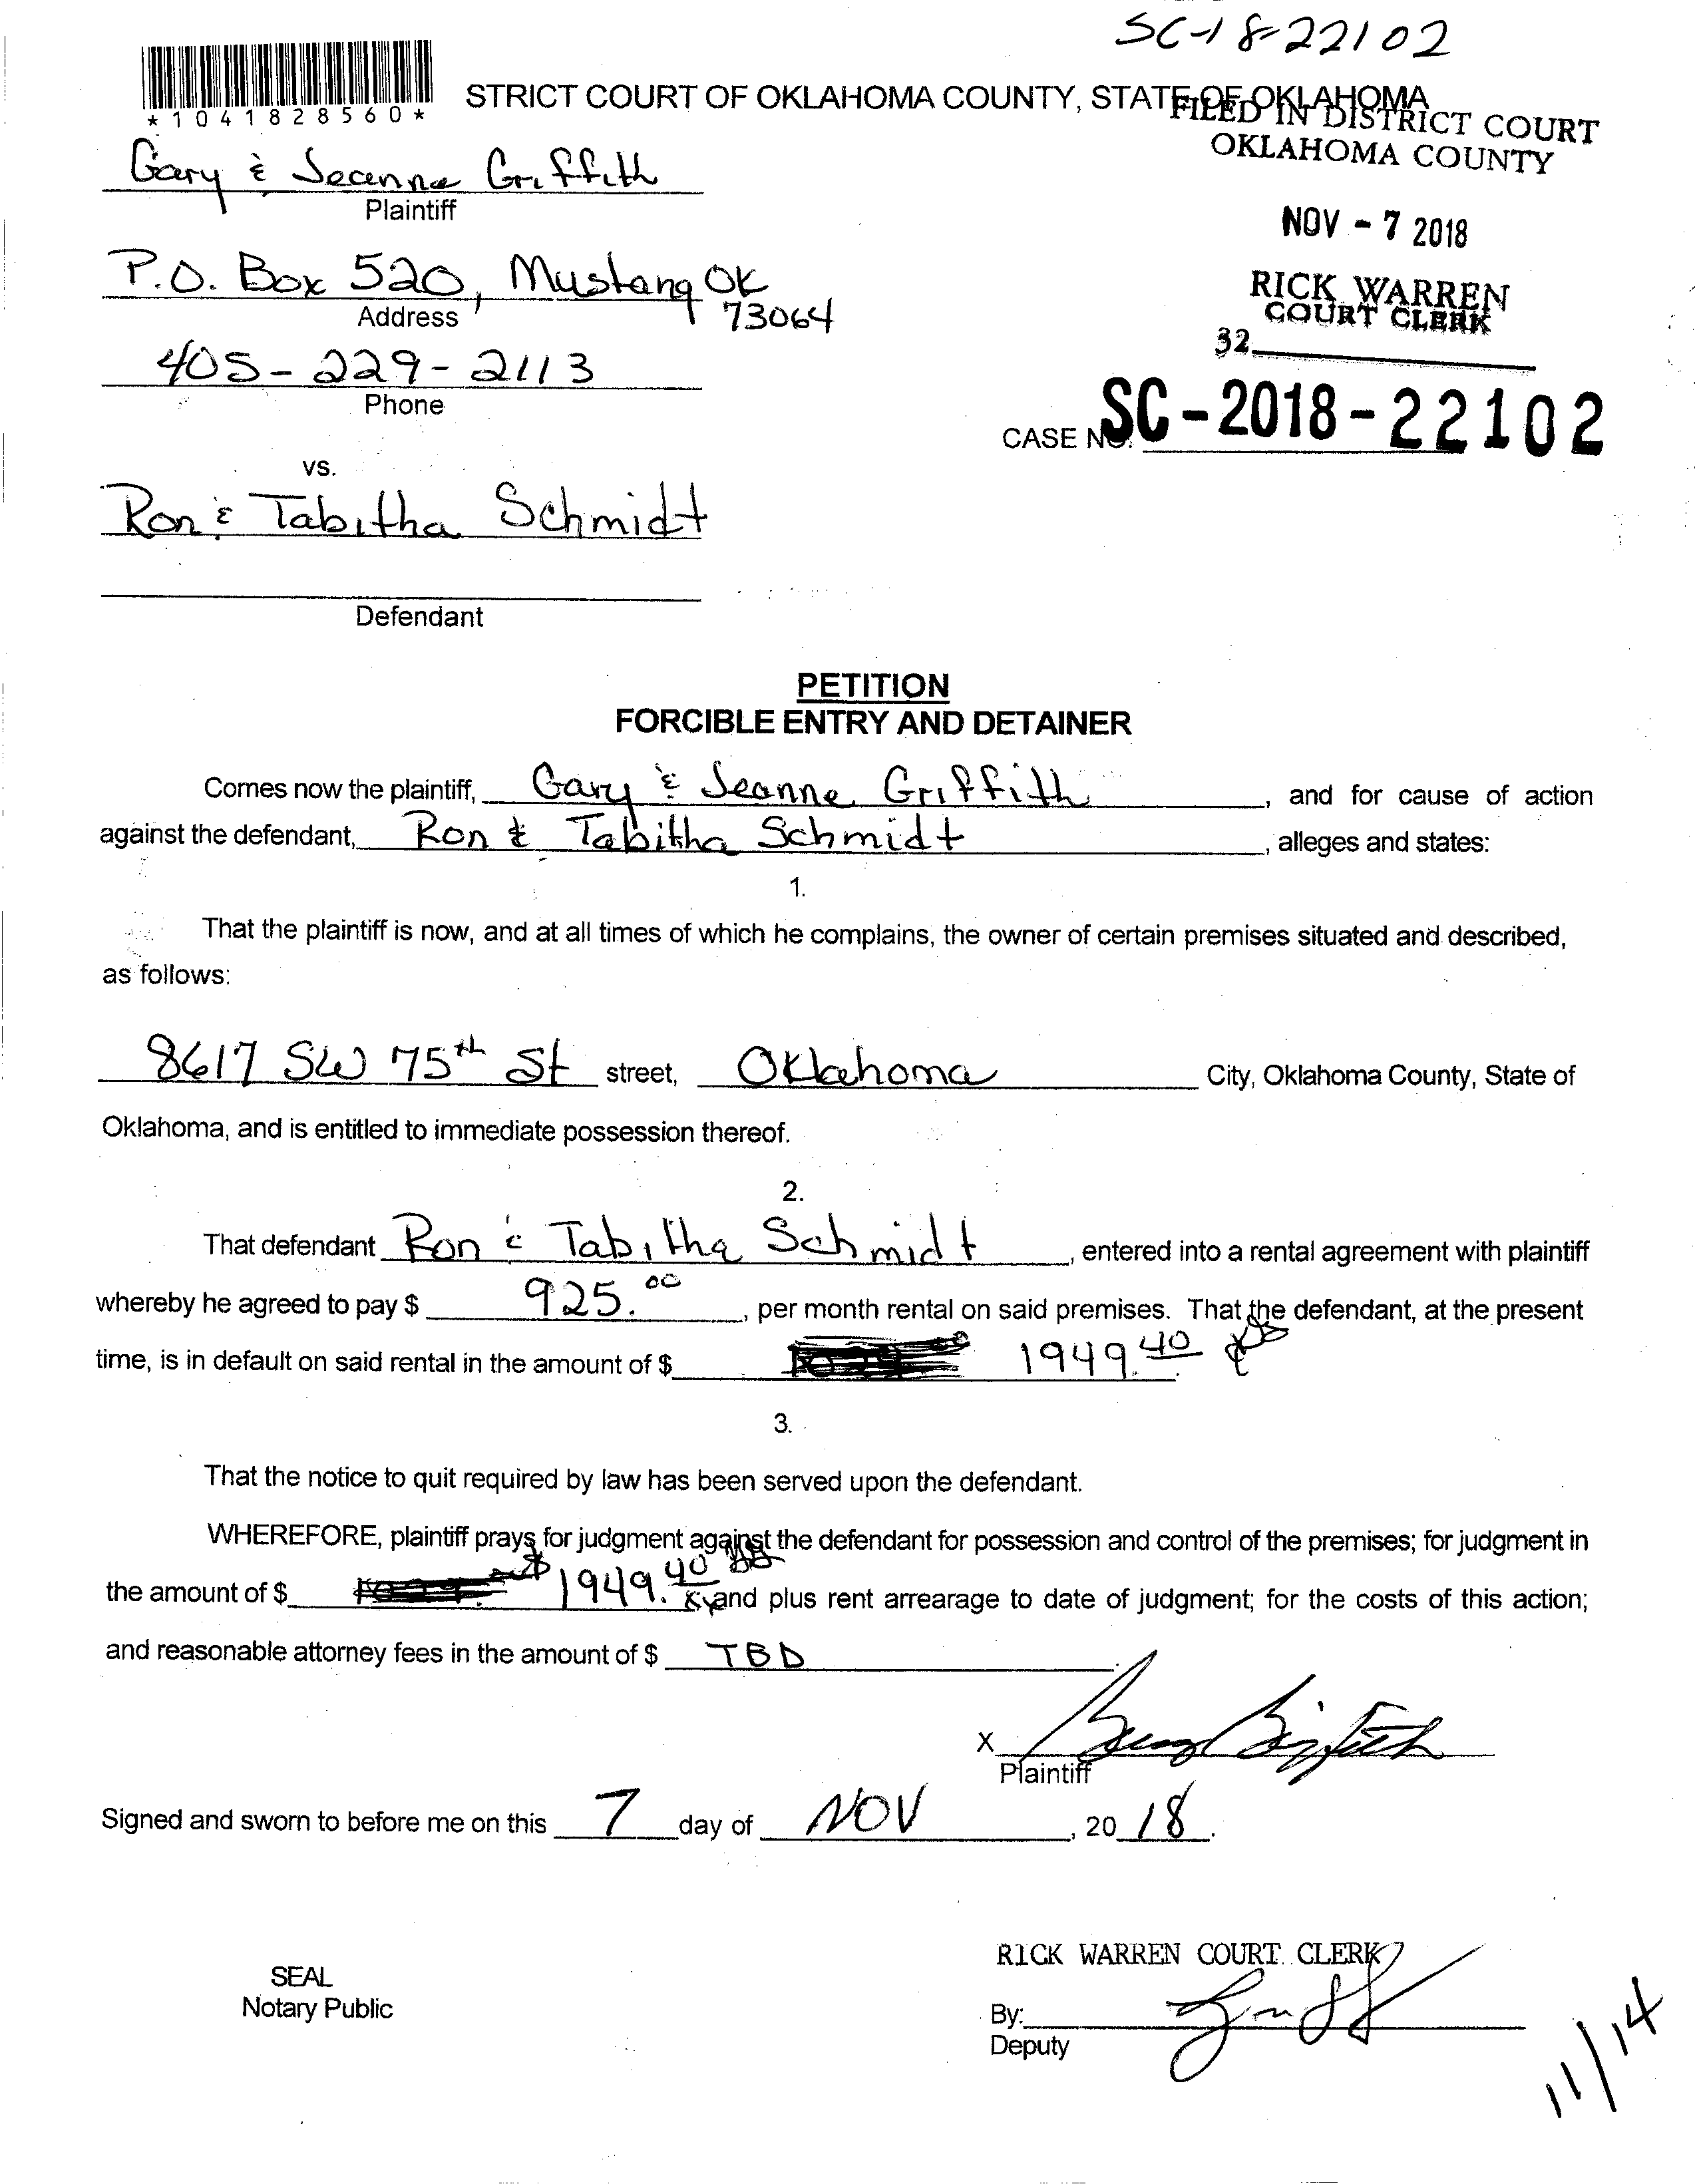 SC-18-22102
*1041828560*
STRICT COURT OF OKLAHOMA COUNTY, STATE OF OKLAHOMA
FILED IN DISTRICT COURT
OKLAHOMA COUNTY
Gary & Jeanne Griffith
Plaintiff
NOV - 7 2018
P.O. Box 520, Mustang OK
73064
Address
RICK WARREN
COURT CLERK
32
405-229-2113
Phone
CASE NO. SC-2018-22102
vs.
Ron & Tabitha Schmidt
Defendant
PETITION
FORCIBLE ENTRY AND DETAINER
Comes now the plaintiff, Gary & Jeanne Griffith, and for cause of action
against the defendant, Ron & Tabitha Schmidt, alleges and states:
1.
That the plaintiff is now, and at all times of which he complains, the owner of certain premises situated and described,
as follows:
8617 SW 75th St street, Oklahoma City, Oklahoma County, State of
Oklahoma, and is entitled to immediate possession thereof.
2.
That defendant Ron & Tabitha Schmidt, entered into a rental agreement with plaintiff
whereby he agreed to pay $ 925.00, per month rental on said premises. That the defendant, at the present
time, is in default on said rental in the amount of $ 1949.40
3.
That the notice to quit required by law has been served upon the defendant.
WHEREFORE, plaintiff prays for judgment against the defendant for possession and control of the premises; for judgment in
the amount of $ 1949.40 and plus rent arrearage to date of judgment; for the costs of this action;
and reasonable attorney fees in the amount of $ TBD
X Gary Griffith
Plaintiff
Signed and sworn to before me on this 7 day of NOV, 2018.
RICK WARREN COURT CLERK
SEAL
Notary Public
By:
Deputy
11/14